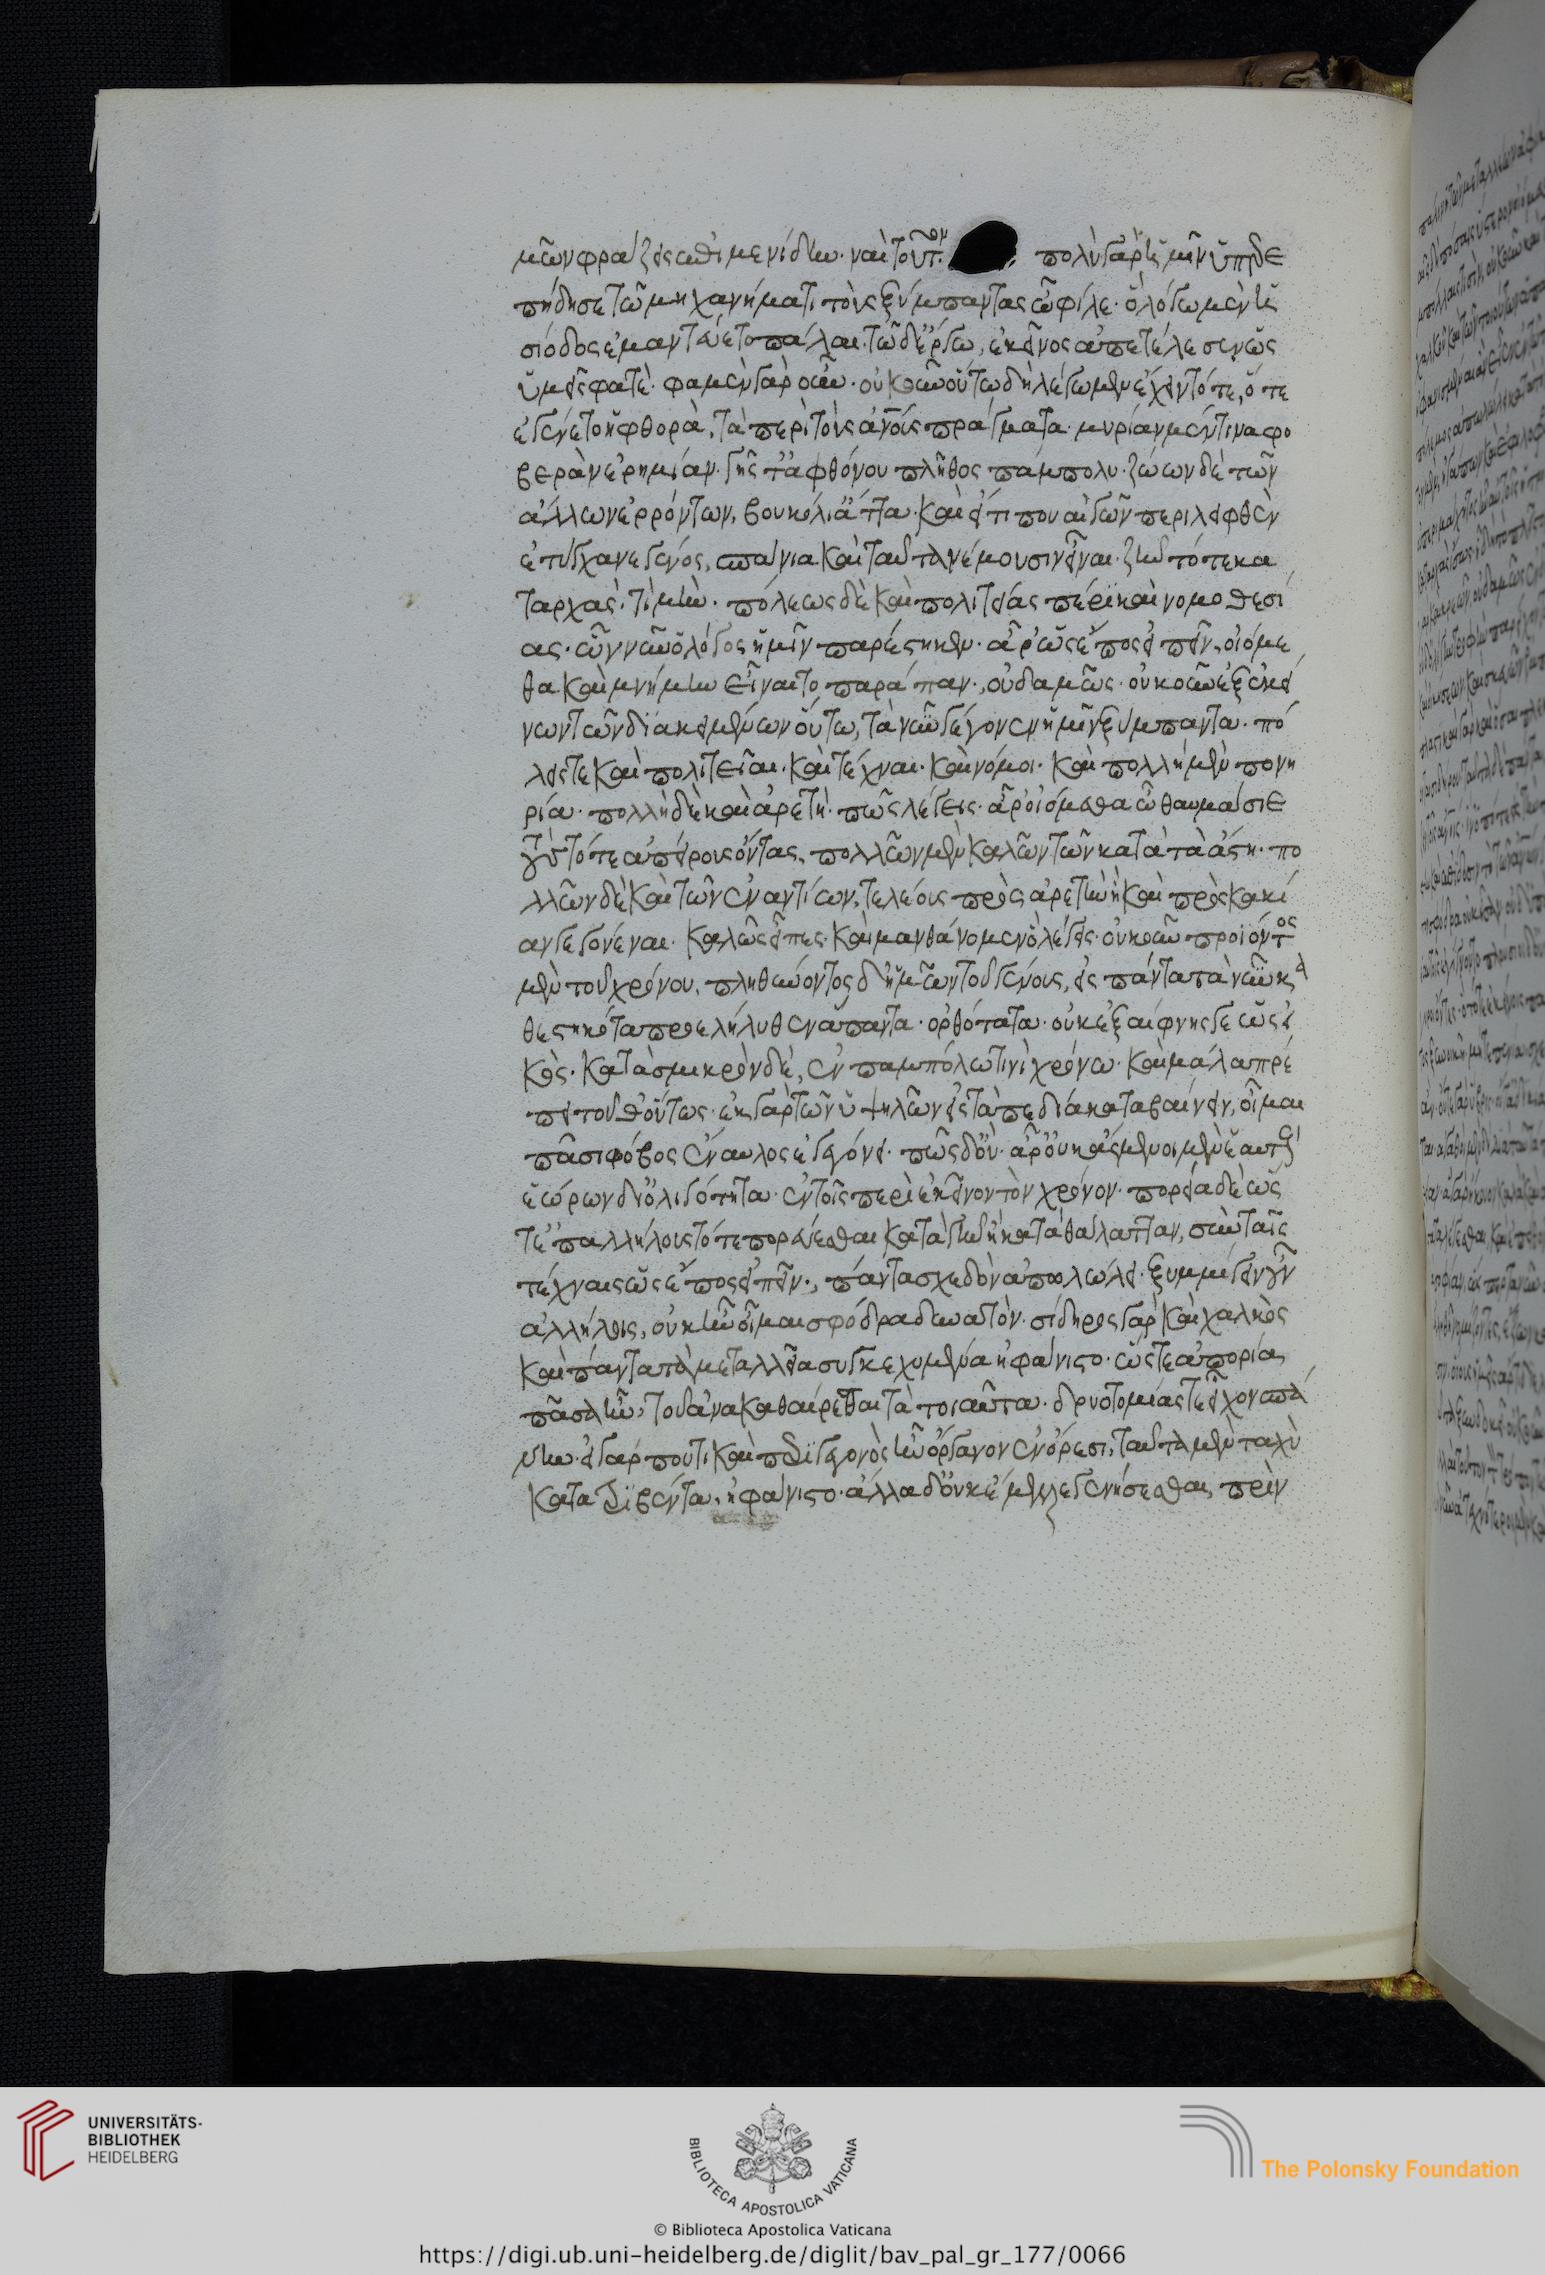 μῶν φράζεις ἐπιμενίδην· ναὶ τοῦτον. πολὺ γὰρ ἡμῖν ὑπερε
πήδησε τῶ μηχανήματι τοὺς ξύμπαντας ὦ φίλε· ὃ λόγω μὲν ἡ
σίοδος ἐμαντεύετο πάλαι· τῶ δ' ἔργω, ἐκεῖνος ἀπετέλεσεν ὡς
ὑμεῖς φατέ· φαμὲν γὰρ οὖν· οὐκοῦν οὕτω δὴ λέγωμεν ἔχειν τότε, ὅτε
ἐγένετο ἡ φθορὰ, τὰ περὶ τοὺς ἀνους πράγματα· μυρίαν μέντινα φο
βερὰν ἐρημίαν· γῆς τ' ἀφθόνου πλῆθος πάμπολυ· ζώων δὲ τῶν
ἄλλων ἐρρόντων, βουκόλι' ἄττα· καὶ εἴ τι που αἰγῶν περιλειφθὲν
ἐτύγχανε γένος, σπάνια καὶ ταῦτα νέμουσιν εἶναι ζῆν τότε κα
ταρχάς· τί μήν· πόλεως δὲ καὶ πολιτείας πέρι καὶ νομοθεσί
ας· ὧν νῦν ὁ λόγος ἡμῖν παρέστηκεν· ἆρ' ὡς ἔπος εἰπεῖν, οἰόμε
θα καὶ μνήμην εἶναι τὸ παράπαν· οὐδαμῶς· οὐκοῦν ἐξ ἐκεί
νων τῶν διακειμένων οὕτω, τὰ νῦν γέγονεν ἡμῖν ξύμπαντα· πό
λεις τε καὶ πολιτεῖαι· καὶ τέχναι· καὶ νόμοι· καὶ πολλὴ μὲν πονη
ρία· πολλὴ δὲ καὶ ἀρετή· πῶς λέγεις· ἆρ' οἰόμεθα ὦ θαυμάσιε
τοὺς τότε ἀπείρους ὄντας, πολλῶν μὲν καλῶν τῶν κατὰ τὰ ἄστη· πο
λλῶν δὲ καὶ τῶν ἐναντίων, τελέους πρὸς ἀρετὴν ἢ καὶ πρὸς κακί
αν γεγονέναι· καλῶς εἶπες· καὶ μανθάνομεν ὃ λέγεις· οὐκοῦν προϊόντος
μὲν τοῦ χρόνου, πληθύοντος δ' ἡμῶν τοῦ γένους, εἰς πάντα τὰ νῦν κα
θεστηκότα προελήλυθεν ἅπαντα· ὀρθότατα· οὐκ ἐξαίφνης γε ὡς εἰ
κὸς· κατὰ σμικρὸν δὲ, ἐν παμπόλω τινὶ χρόνω· καὶ μάλα πρέ
πει τοῦθ' οὕτως· ἐκ γὰρ τῶν ὑψηλῶν εἰς τὰ πεδία καταβαίνειν, οἶμαι
πᾶσι φόβος ἔναυλος ἐγεγόνει· πῶς δ' οὔ· ἆρ' οὐκ ἄσμενοι μὲν ἑαυτοὺς
ἑώρων δι' ὀλιγότητα· ἐν τοῖς περὶ ἐκεῖνον τὸν χρόνον· πορεῖα δὲ ὥς
τ' ἐπ' ἀλλήλους τότε πορεύεσθαι κατὰ γῆν ἢ κατὰ θάλατταν, σὺν ταῖς
τέχναις ὡς ἔπος εἰπεῖν· πάντα σχεδὸν ἀπολώλει· ξυμμίσγειν οὖν
ἀλλήλοις, οὐκ ἦν οἶμαι σφόδρα δυνατόν· σίδηρος γὰρ καὶ χαλκὸς
καὶ πάντα τὰ μεταλλεῖα συγκεχυμένα ἠφάνιστο· ὥστε ἀπορία
πᾶσα ἦν, τοῦ ἀνακαθαίρεσθαι τὰ τοιαῦτα· δρυοτομίας τε εἶχον σπά
νιν· εἰ γάρ που τι καὶ περιγεγονὸς ἦν ὄργανον ἐν ὄρεσι, ταῦτα μὲν ταχὺ
κατατριβέντα, ἠφάνιστο· ἄλλα δ' οὐκ ἔμελλε γενήσεσθαι, πρὶν
UNIVERSITÄTS-
BIBLIOTHEK
HEIDELBERG
BIBLIOTECA APOSTOLICA VATICANA
The Polonsky Foundation
© Biblioteca Apostolica Vaticana
https://digi.ub.uni-heidelberg.de/diglit/bav_pal_gr_177/0066